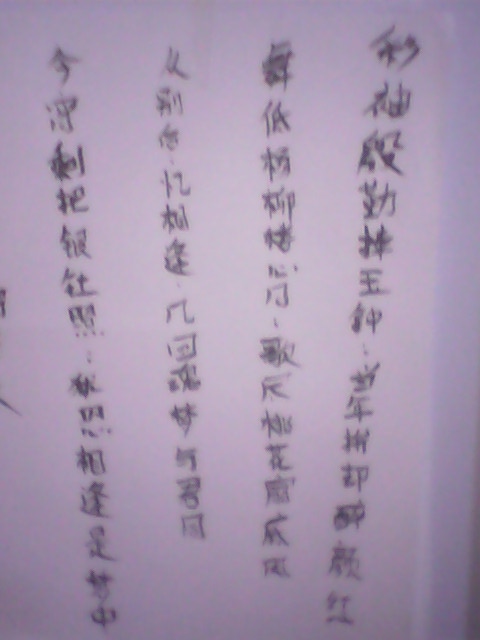 彩袖殷勤捧玉钟、当年拚却醉颜红
舞低杨柳楼心月、歌尽桃花扇底风
从别后、忆相逢、几回魂梦与君同
今宵剩把银缸照、犹恐相逢是梦中